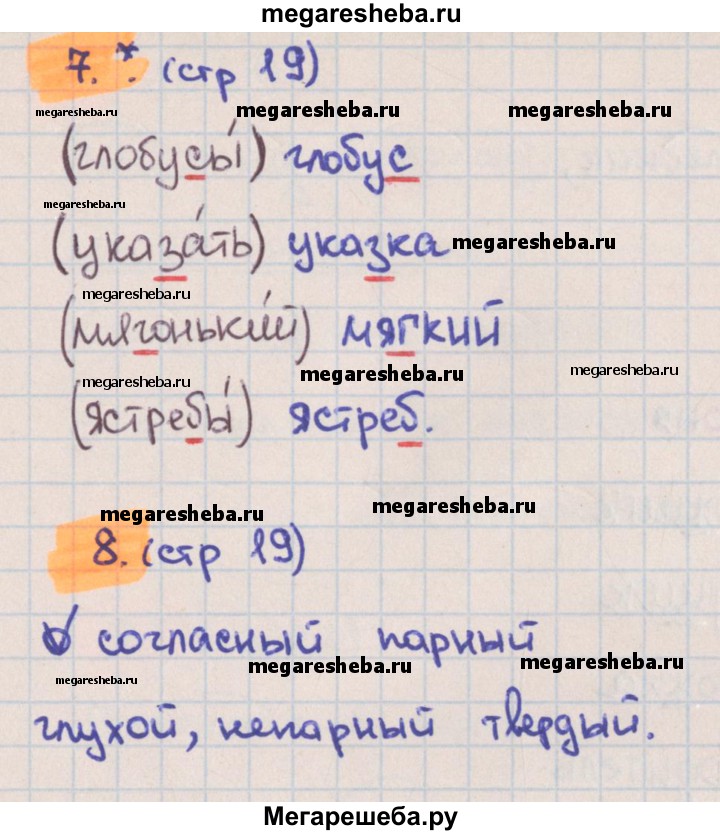 megaresheba.ru
7.*. (стр 19)
megaresheba.ru megaresheba.ru megaresheba.ru
(глобусы́) глобус
megaresheba.ru
(указа́ть) указка megaresheba.ru
megaresheba.ru
(мягонький) мягкий
megaresheba.ru megaresheba.ru megaresheba.ru
(ястребы́) ястреб.
megaresheba.ru megaresheba.ru
8. (стр 19)
согласный парный
megaresheba.ru megaresheba.ru megaresheba.ru
глухой, непарный твердый.
Мегарешеба.ру